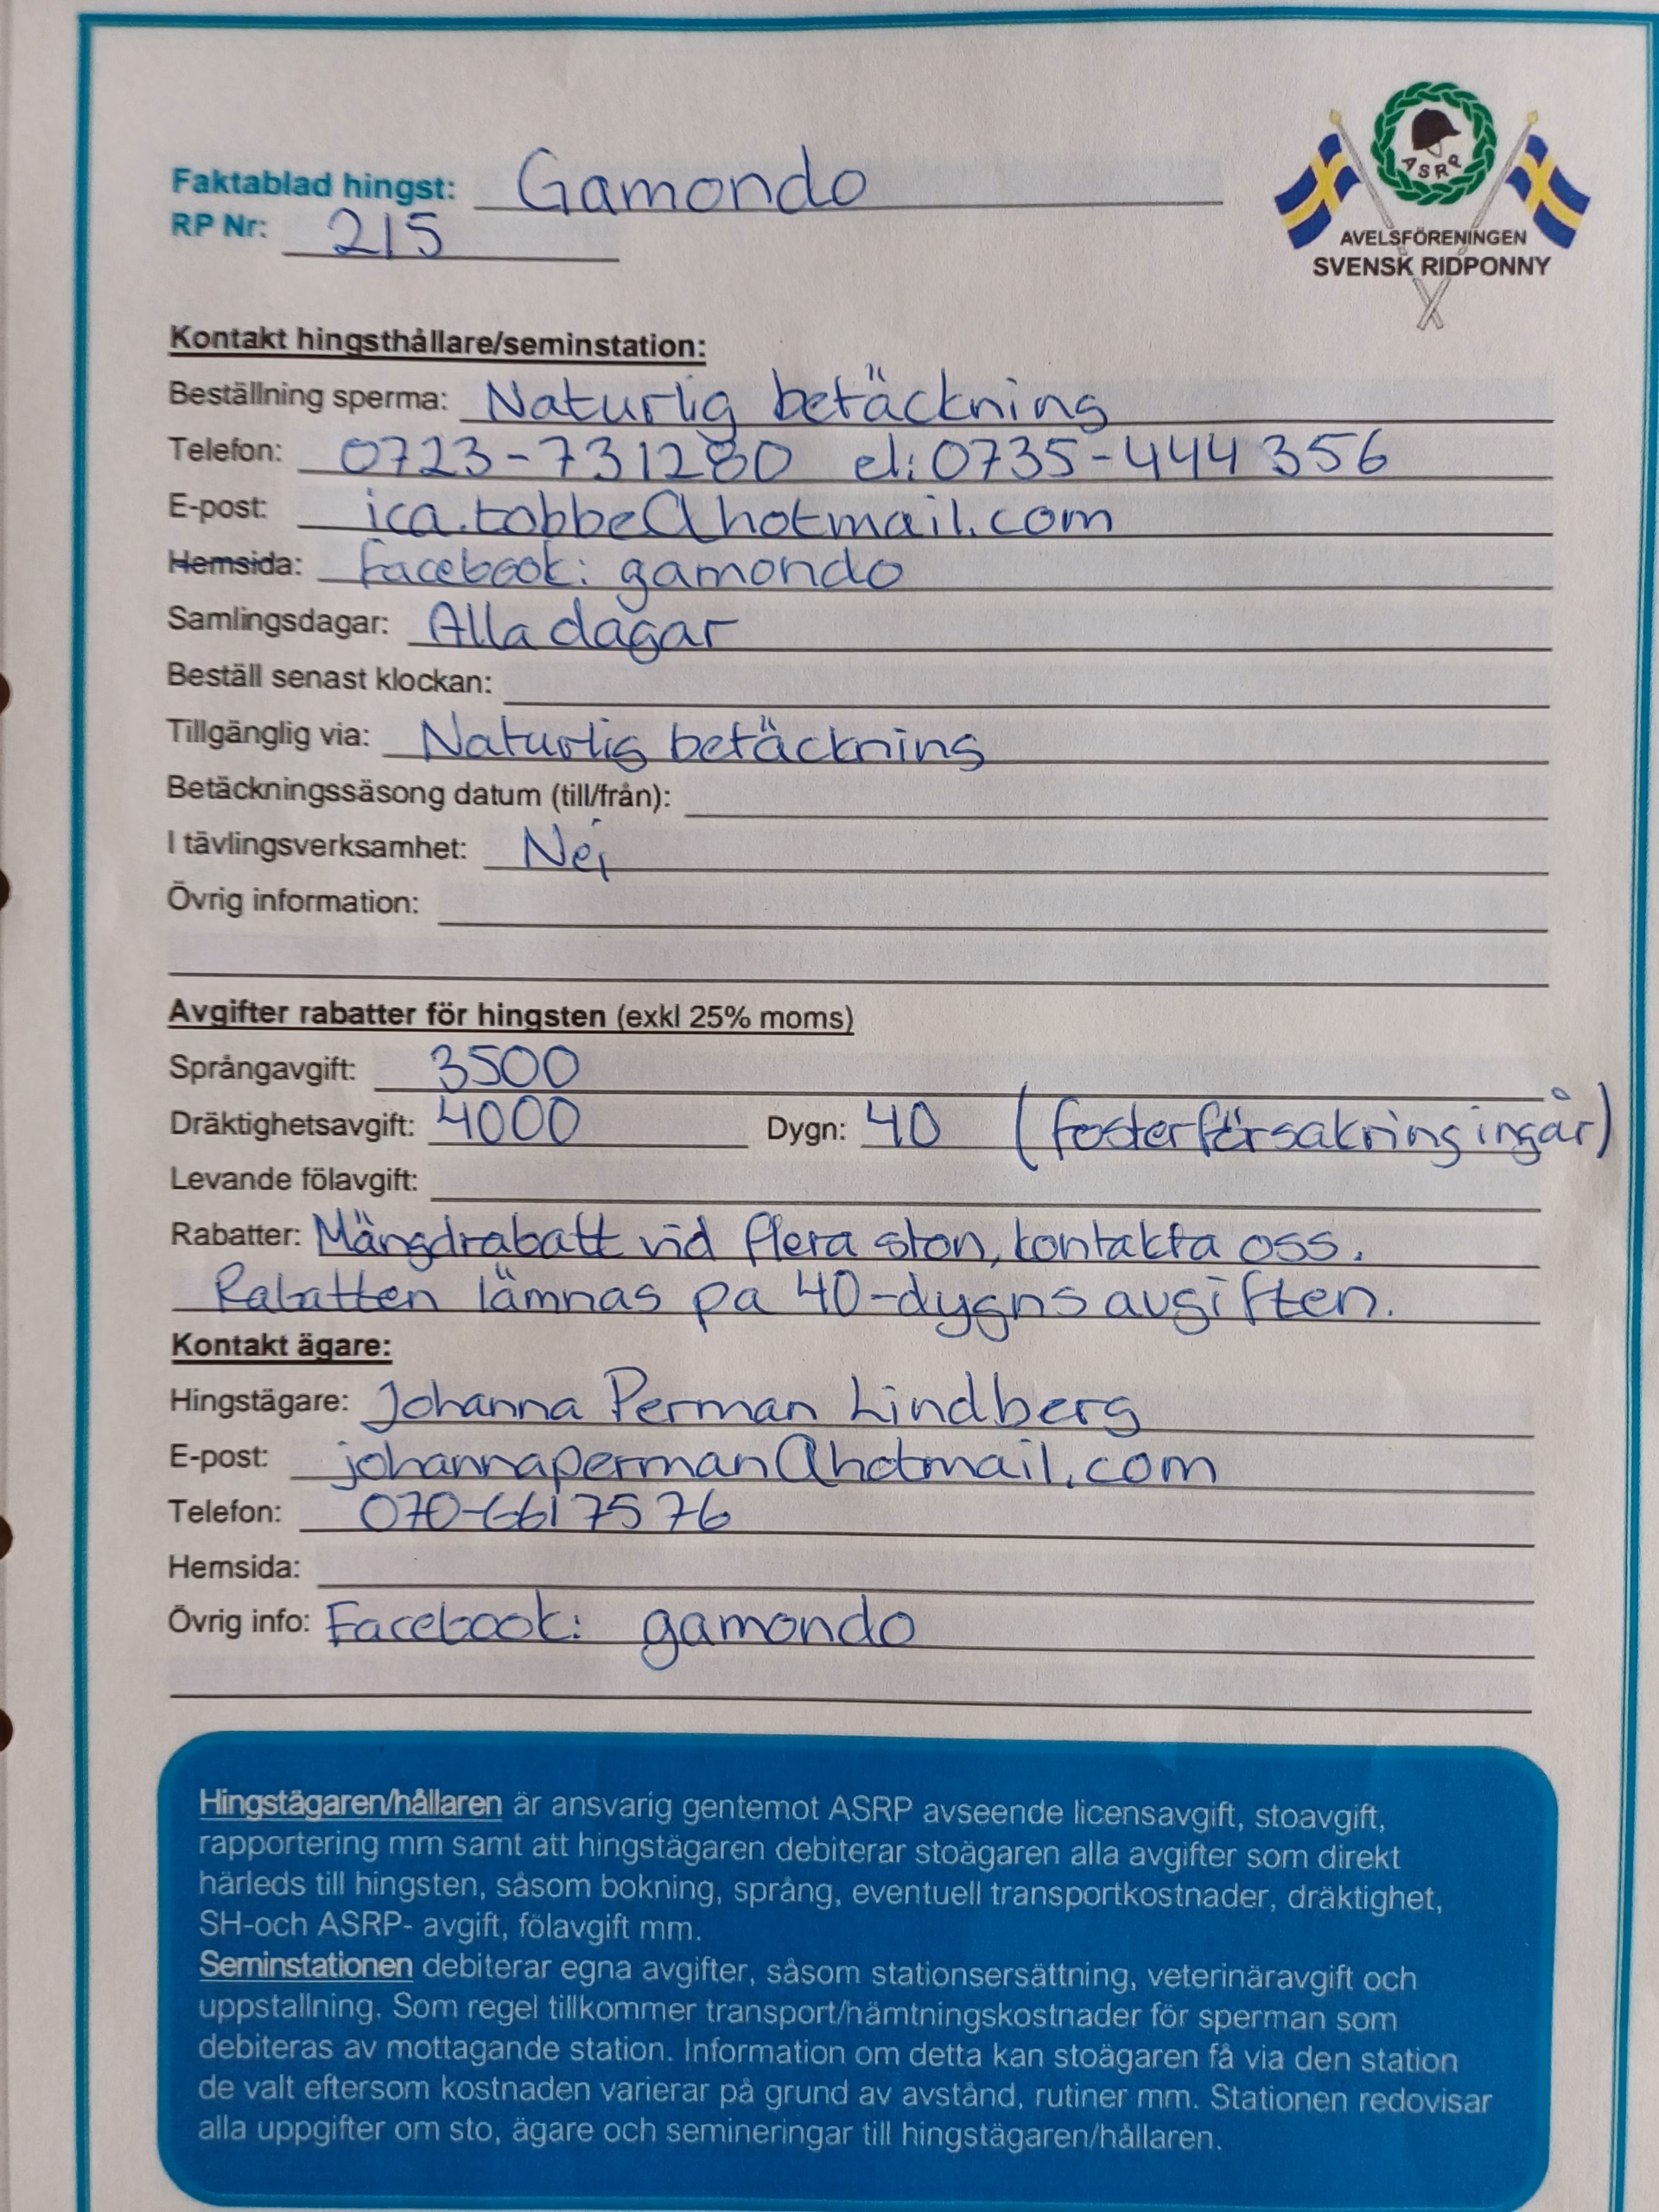 Faktablad hingst: Gamondo
RP Nr: 215
ASRP
AVELSFÖRENINGEN
SVENSK RIDPONNY
Kontakt hingsthållare/seminstation:
Beställning sperma: Naturlig betäckning
Telefon: 0723-731280 el: 0735-444 356
E-post: ica.tobbe@hotmail.com
Hemsida: Facebook: gamondo
Samlingsdagar: Alla dagar
Beställ senast klockan:
Tillgänglig via: Naturlig betäckning
Betäckningssäsong datum (till/från):
I tävlingsverksamhet: Nej
Övrig information:
Avgifter rabatter för hingsten (exkl 25% moms)
Språngavgift: 3500
Dräktighetsavgift: 4000 Dygn: 40 (fosterförsakring ingår)
Levande fölavgift:
Rabatter: Mängdrabatt vid flera ston, kontakta oss.
Rabatten lämnas pa 40-dygnsavgiften.
Kontakt ägare:
Hingstägare: Johanna Perman Lindberg
E-post: johannaperman@hotmail.com
Telefon: 070-661 75 76
Hemsida:
Övrig info: Facebook: gamondo
Hingstägaren/hållaren är ansvarig gentemot ASRP avseende licensavgift, stoavgift,
rapportering mm samt att hingstägaren debiterar stoägaren alla avgifter som direkt
härleds till hingsten, såsom bokning, språng, eventuell transportkostnader, dräktighet,
SH-och ASRP- avgift, fölavgift mm.
Seminstationen debiterar egna avgifter, såsom stationsersättning, veterinäravgift och
uppstallning. Som regel tillkommer transport/hämtningskostnader för sperman som
debiteras av mottagande station. Information om detta kan stoägaren få via den station
de valt eftersom kostnaden varierar på grund av avstånd, rutiner mm. Stationen redovisar
alla uppgifter om sto, ägare och semineringar till hingstägaren/hållaren.